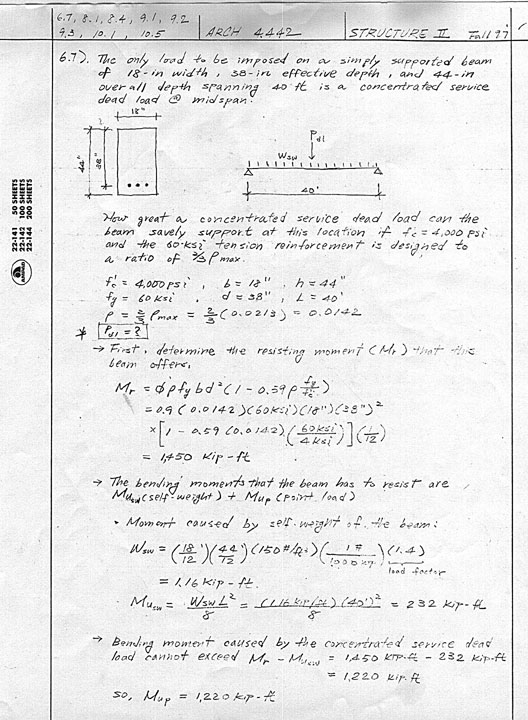 6.7, 8.1, 8.4, 9.1, 9.2
9.3, 10.1, 10.5
ARCH 4.442
STRUCTURE II
Fall 97
6.7). The only load to be imposed on a simply supported beam
of 18-in width, 38-in effective depth, and 44-in
overall depth spanning 40 ft is a concentrated service
dead load @ midspan.
18"
44"
38"
Pdl
Wsw
40'
50 SHEETS
100 SHEETS
200 SHEETS
22-141
22-142
22-144
How great a concentrated service dead load can the
beam savely support at this location if f'c = 4,000 psi
and the 60-ksi tension reinforcement is designed to
a ratio of 2/3 ρmax.
f'c = 4,000 psi, b = 18", h = 44"
fy = 60 ksi, d = 38", L = 40'
ρ = 2/3 ρmax = 2/3 (0.0213) = 0.0142
* Pdl = ?
→ First, determine the resisting moment (Mr) that this
beam offers,
Mr = φρfybd²(1 - 0.59ρ fy/f'c)
= 0.9 (0.0142)(60ksi)(18")(38")²
×[1 - 0.59 (0.0142)(60ksi/4ksi)](1/12)
= 1,450 kip-ft
→ The bending moments that the beam has to resist are
Musw (self-weight) + Mup (point load)
• Moment caused by self-weight of the beam:
Wsw = (18/12')(44'/12)(150 #/ft³)(1#/1000 kip)(1.4)
load factor
= 1.16 kip-ft.
• Musw = WswL²/8 = (1.16 kip/ft)(40')²/8 = 232 kip-ft
→ Bending moment caused by the concentrated service dead
load cannot exceed Mr - Musw = 1,450 kip-ft - 232 kip-ft
= 1,220 kip-ft
so, Mup = 1,220 kip-ft